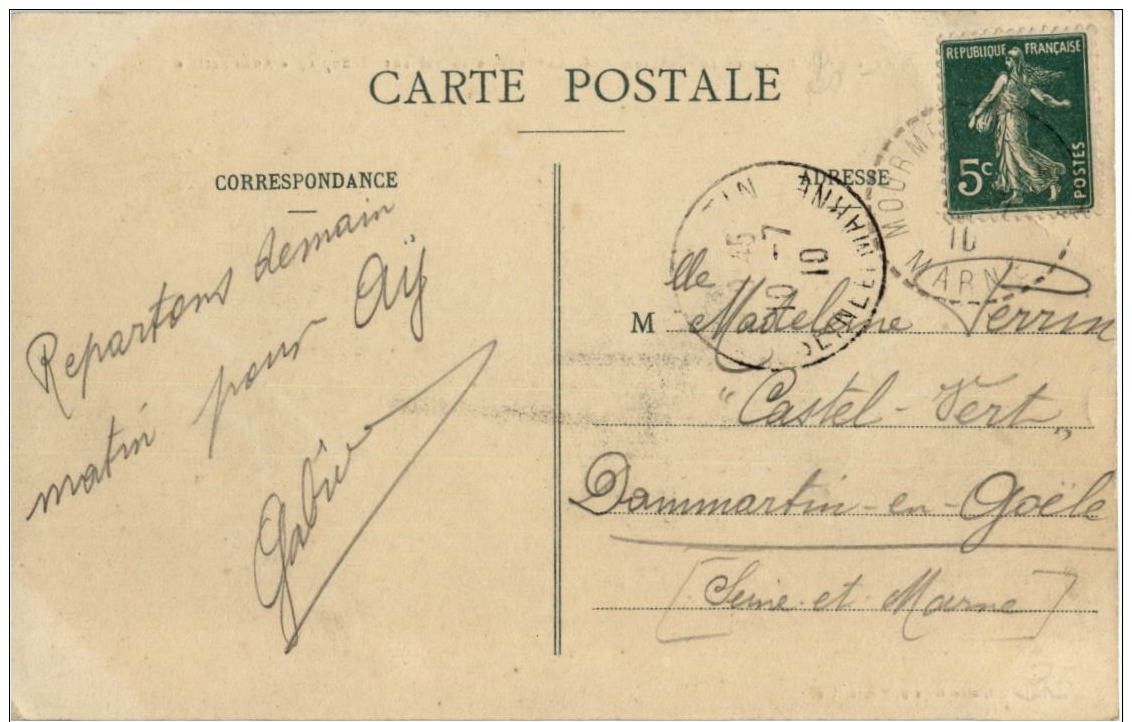 CARTE POSTALE
CORRESPONDANCE
Repartons demain
matin pour Aÿ
ADRESSE
M lle Madeleine Perrin
"Castel-Vert"
Dammartin-en-Goële
[Seine-et-Marne]
REPUBLIQUE FRANÇAISE
5c
POSTES
MARNE
10
TIN
45
-7
10
SEINE ET MARNE